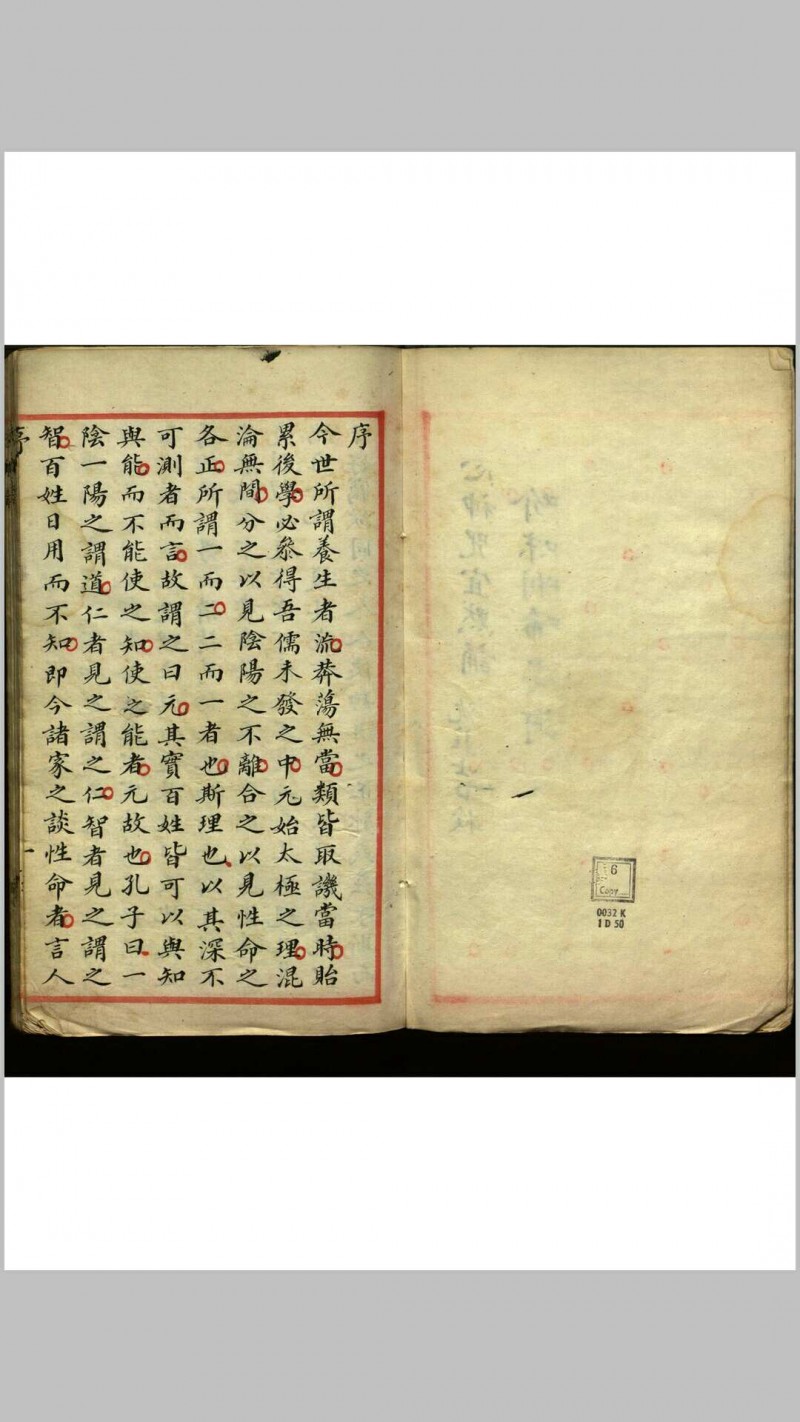 序
今世所謂養生者流莽蕩無當類皆取譏當時貽
累後學必叅得吾儒未發之中元始太極之理混
淪無間分之以見陰陽之不離合之以見性命之
各正所謂一而二二而一者也斯理也以其深不
可測者而言故謂之曰元其實百姓皆可以與知
與能而不能使之知使之能者元故也孔子曰一
陰一陽之謂道仁者見之謂之仁智者見之謂之
智百姓日用而不知即今諸家之談性命者言人
序
一
6
Copy
0032 K
1 D 50